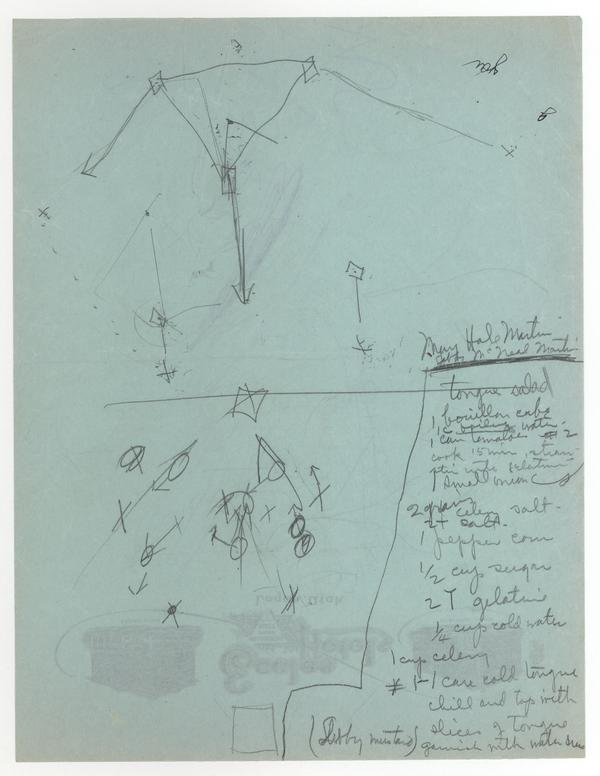 you
Mary Hale Martin
Libby McNeal Martin
tongue salad
1 bouillon cube
1 c boiling water
1 can tomatoes # 2
cook 15 min, strain
gelatine
1 small onion
2 celery salt
2 t salt
1 pepper corn
1/2 cup sugar
2 T gelatine
1/4 cup cold water
1 cup celery
# 1-1 can cold tongue
chill and top with
slices of tongue
(Libby mustard) garnish with water
Logan, Utah
Eccles Hotels